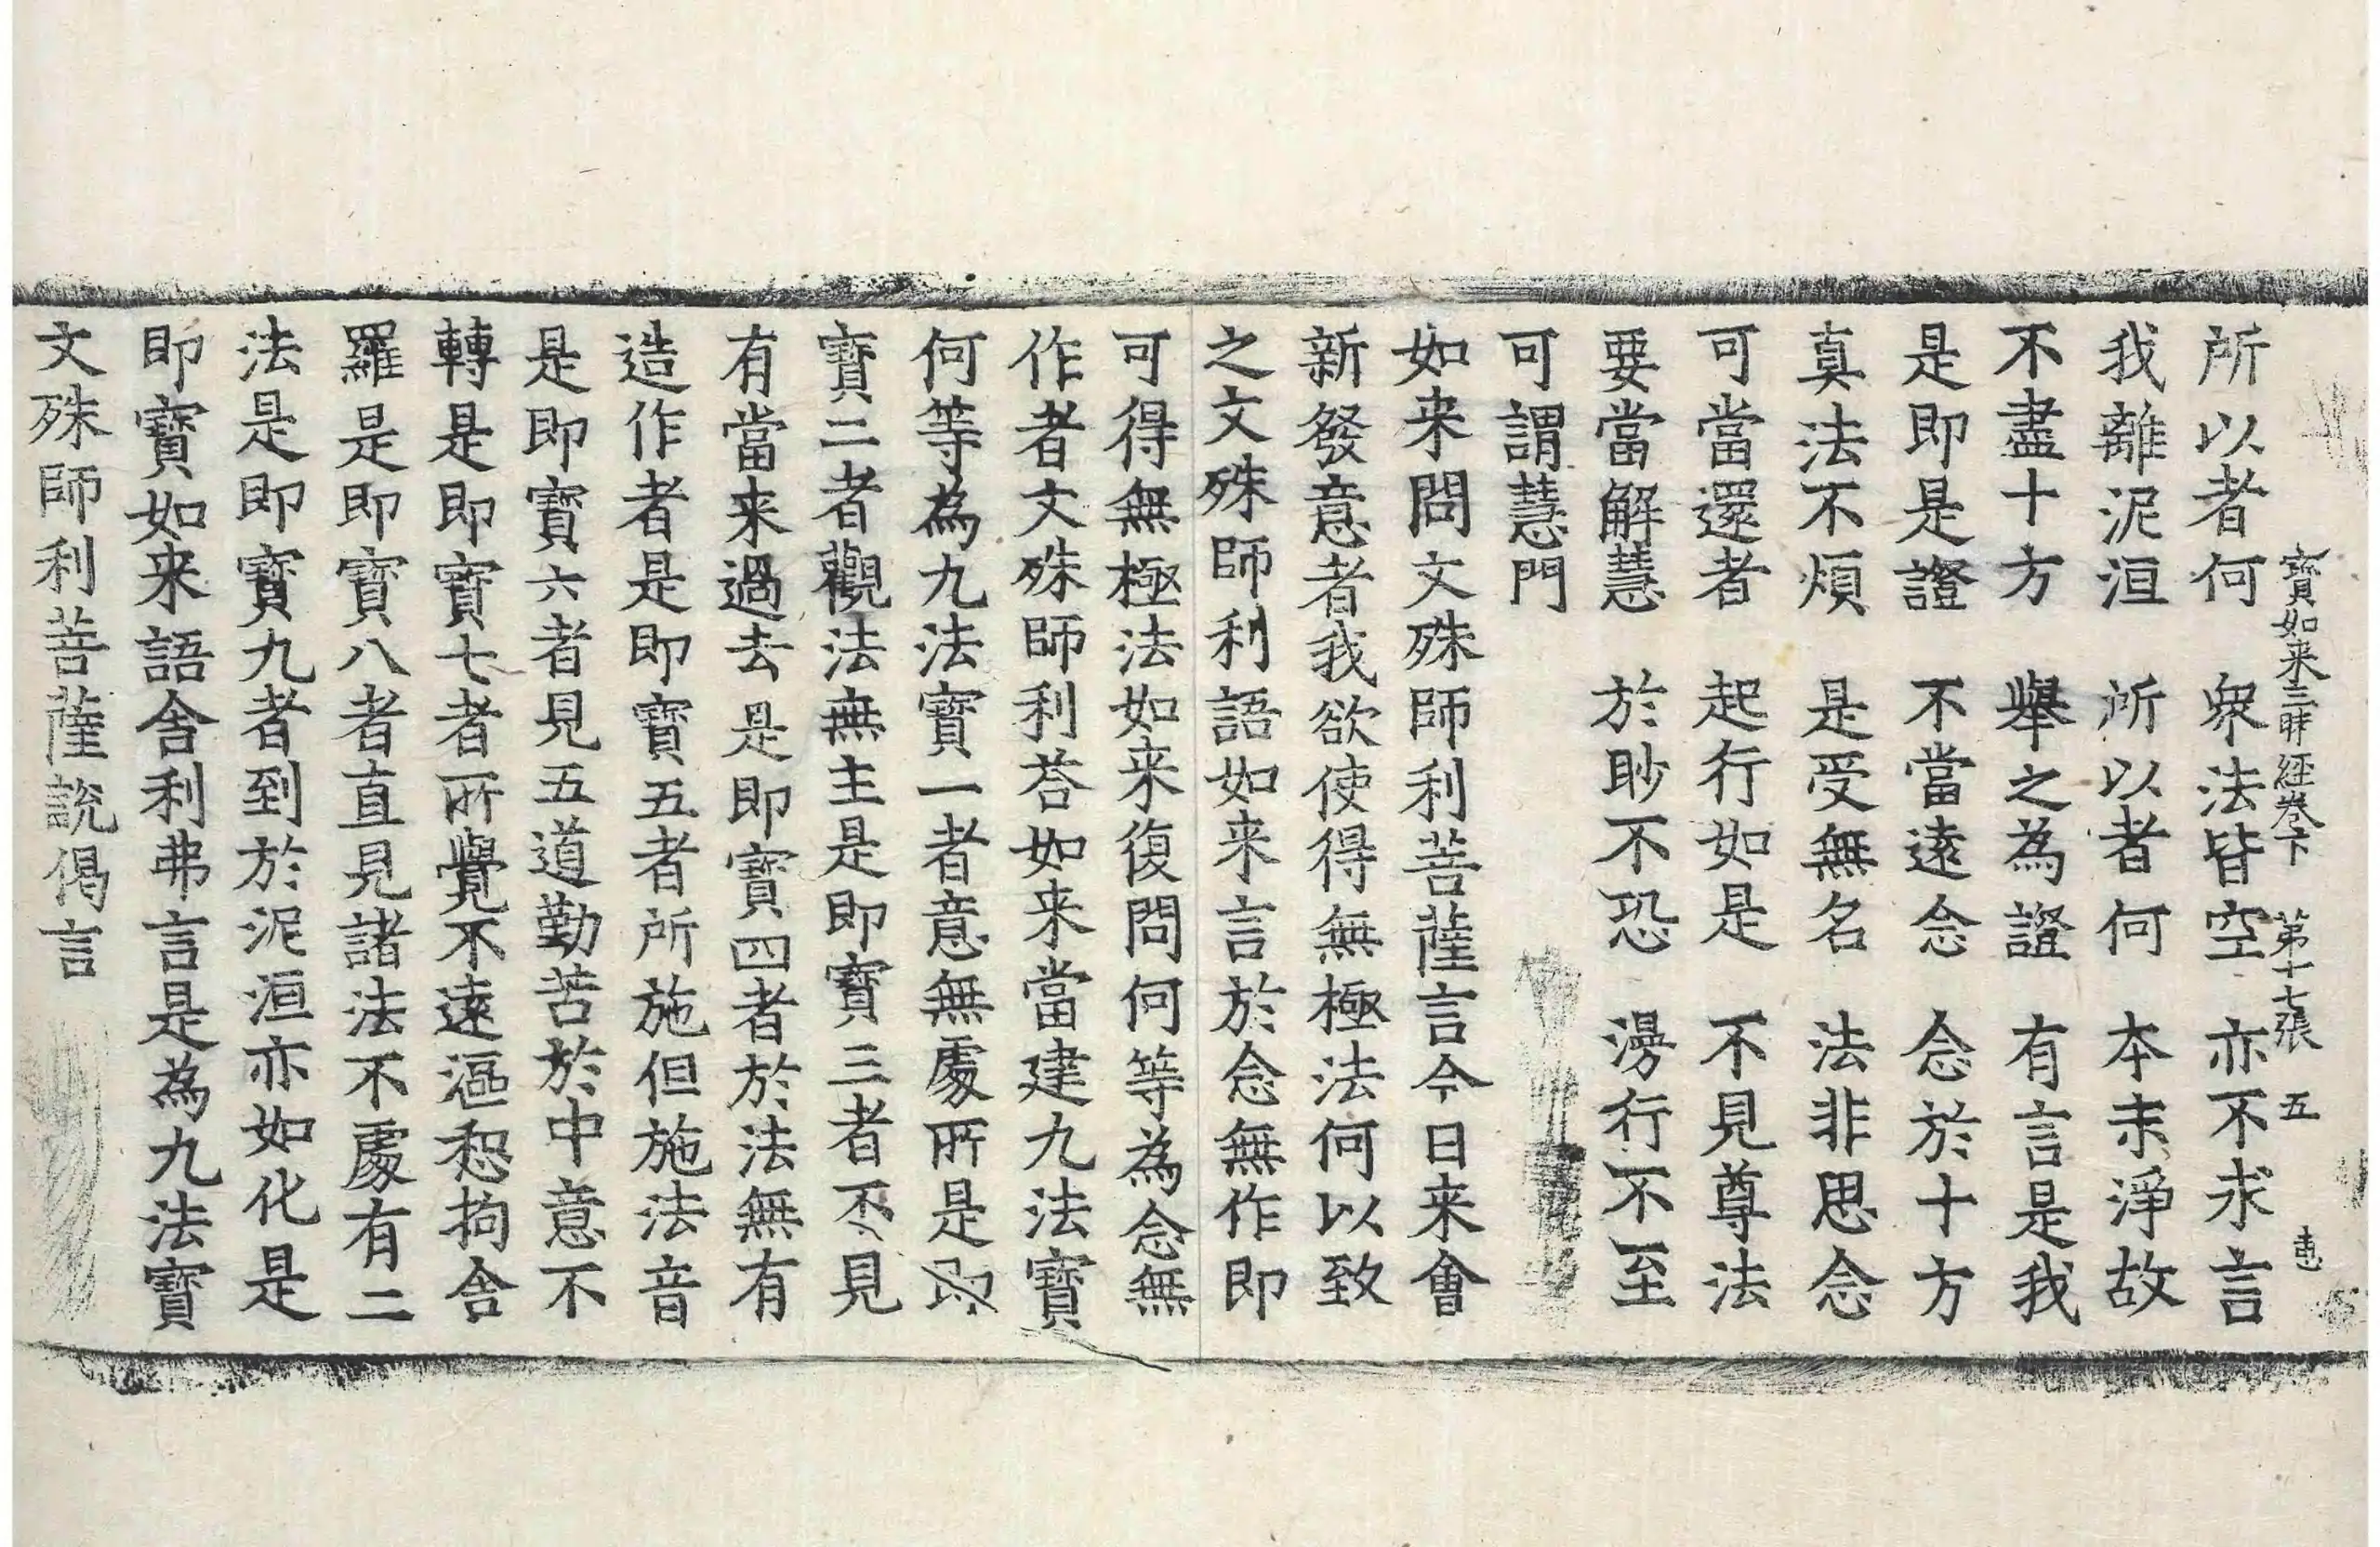 寶如来三昧經卷下 第十七張 五
所以者何 衆法皆空 亦不求言
我離泥洹 所以者何 本末淨故
不盡十方 舉之為證 有言是我
是即是證 不當遠念 念於十方
真法不煩 是受無名 法非思念
可當還者 起行如是 不見尊法
要當解慧 於眇不恐 漫行不至
可謂慧門
如来問文殊師利菩薩言今日来會
新發意者我欲使得無極法何以致
之文殊師利語如来言於念無作即
可得無極法如来復問何等為念無
作者文殊師利荅如来當建九法寶
何等為九法寶一者意無處所是即
寶二者觀法無主是即寶三者不見
有當来過去是即寶四者於法無有
造作者是即寶五者所施但施法音
是即寶六者見五道勤苦於中意不
轉是即寶七者所覺不遠漚惒拘舍
羅是即寶八者直見諸法不處有二
法是即寶九者到於泥洹亦如化是
即寶如来語舍利弗言是為九法寶
文殊師利菩薩說偈言